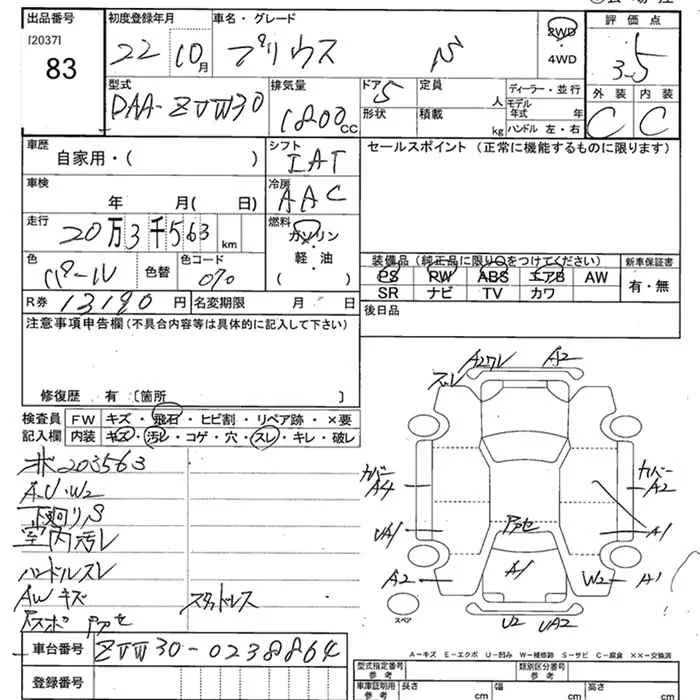 出品番号 初度登録年月 車名・グレード 評価点
[2037]
83
22 10月 プリウス S 2WD 3.5
4WD
型式 排気量 ドア 5 定員 人 ディーラー・並行 外装 内装
DAA-ZVW30 1800cc 形状 積載 kg モデル年式 年 C C
ハンドル 左・右
車歴 シフト セールスポイント (正常に機能するものに限ります)
自家用・( ) IAT
車検 冷房
年 月( 日) AAC
走行 燃料
20万3千563km ガソリン
軽・油
( )
色 色替 色コード 装備品(純正品に限り○をつけてください) 新車保証書
パール 070 PS RW ABS エアB AW 有・無
SR ナビ TV カワ
R券 13190円 名変期限 月 日 後日品
注意事項申告欄(不具合内容等は具体的に記入して下さい)
修復歴 有 〔箇所 〕
検査員 FW キズ・飛石・ヒビ割・リペア跡・×要
記入欄 内装 キズ・汚レ・コゲ・穴・スレ・キレ・破レ
203563
A.U.W2
下廻りS
室内汚レ
ハンドルスレ
AWキズ スタッドレス
アセ
A2ワレ A2
ズレ
カバー A4 カバー A2
UA1 アセ A1
A2 A1 W2 A1
スペア U2 UA2
A-キズ E-エクボ U-凹み W-補修跡 S-サビ C-腐食 ××-交換済
車台番号 ZVW30-0238864
登録番号
型式指定番号 参考 類別区分番号 参考
車庫証明用 参考 長さ cm 幅 cm 高さ cm